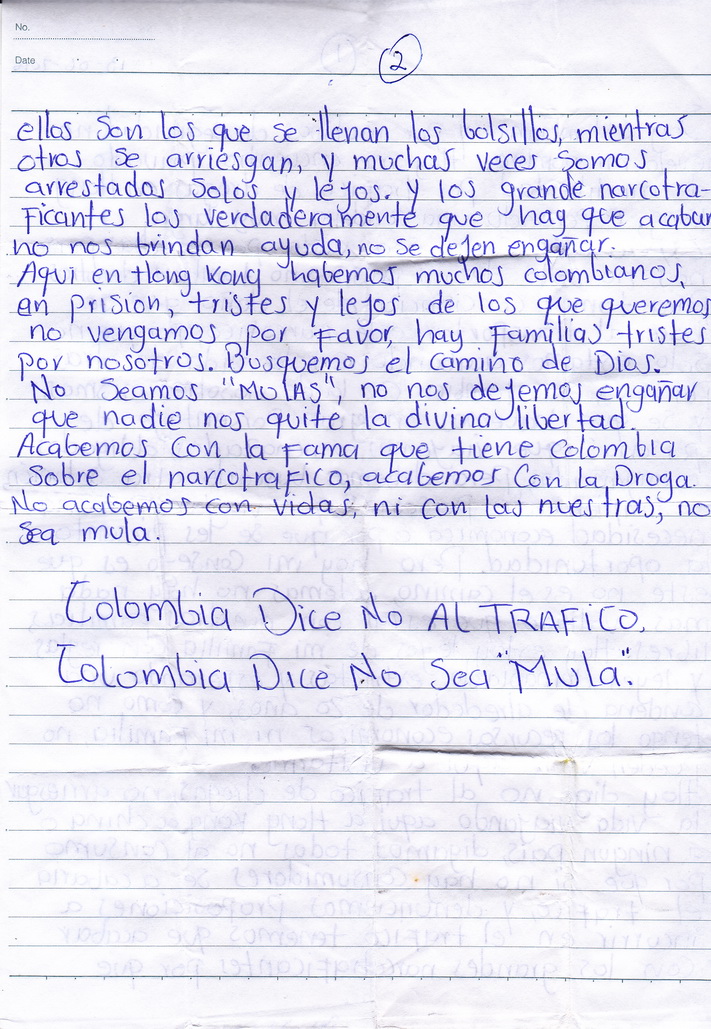 No.
Date
2
ellos son los que se llenan los bolsillos, mientras
otros se arriesgan, y muchas veces somos
arrestados solos y lejos. y los grande narcotra-
ficantes los verdaderamente que hay que acabar
no nos brindan ayuda, no se dejen engañar.
Aqui en Hong Kong habemos muchos colombianos,
en prision, tristes y lejos de los que queremos
no vengamos por favor, hay familias tristes
por nosotros. Busquemos el camino de Dios.
No seamos "MULAS", no nos dejemos engañar
que nadie nos quite la divina libertad.
Acabemos con la fama que tiene colombia
sobre el narcotrafico, acabemos con la Droga.
No acabemos con vidas, ni con las nuestras, no
sea mula.
Colombia Dice No AL TRAFICO.
Colombia Dice No Sea "Mula".